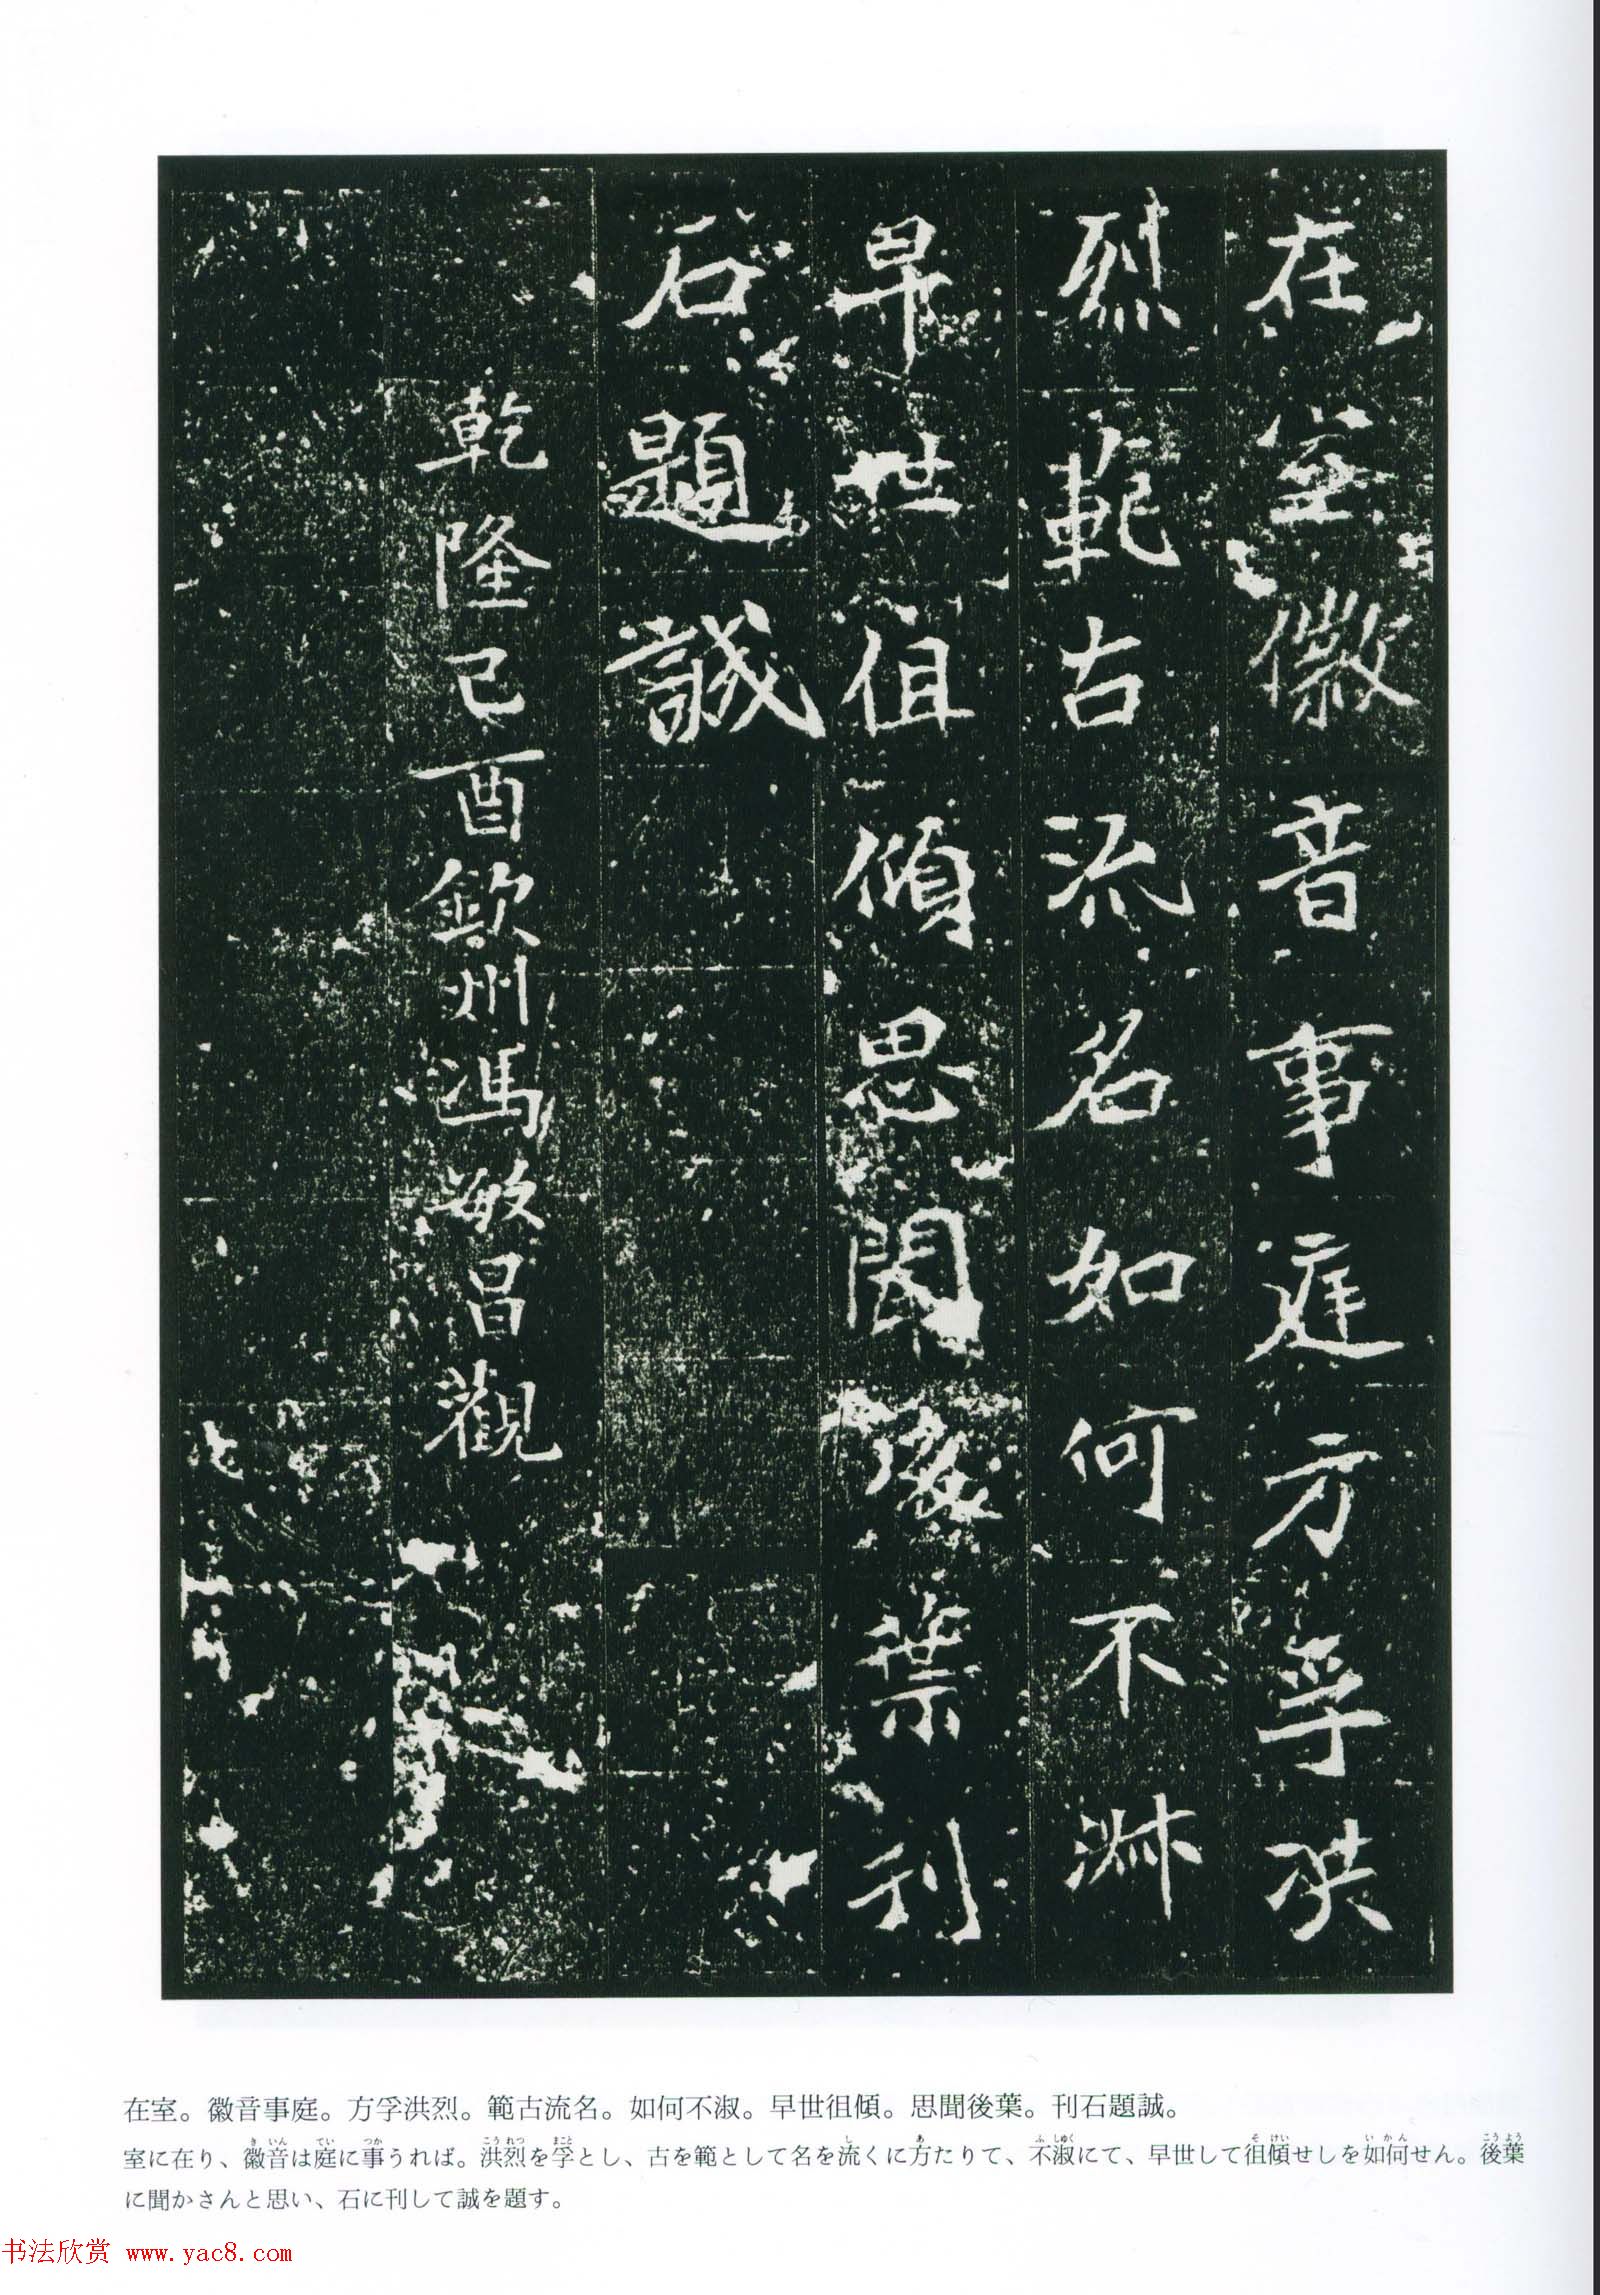 在室徽音事庭方孚洪
烈範古流名如何不淋
早世徂傾思聞後葉刊
石題誠
乾隆己酉欽州馮敏昌觀
在室。徽音事庭。方孚洪烈。範古流名。如何不淑。早世徂傾。思聞後葉。刊石題誠。
室に在り、徽音は庭に事うれば。洪烈を孚とし、古を範として名を流くに方たりて、不淑にて、早世して徂傾せしを如何せん。後葉
に聞かさんと思い、石に刊して誠を題す。
书法欣赏 www.yac8.com